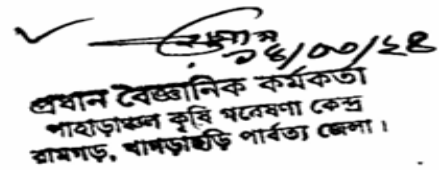 ১৪/০৩/২৪
প্রধান বৈজ্ঞানিক কর্মকর্তা
পাহাড়াঞ্চল কৃষি গবেষণা কেন্দ্র
রামগড়, খাগড়াছড়ি পার্বত্য জেলা।